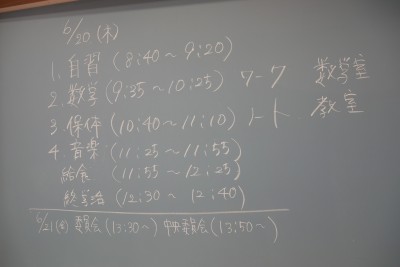 6/20(木)
1. 自習 (8:40〜9:20)
2. 数学 (9:35〜10:25) ワーク 数学室
3. 保体 (10:40〜11:10) ノート 教室
4. 音楽 (11:25〜11:55)
給食 (11:55〜12:25)
総学活 (12:30〜12:40)
6/21(金) 委員会(13:30〜) 中央委員会(13:50〜)